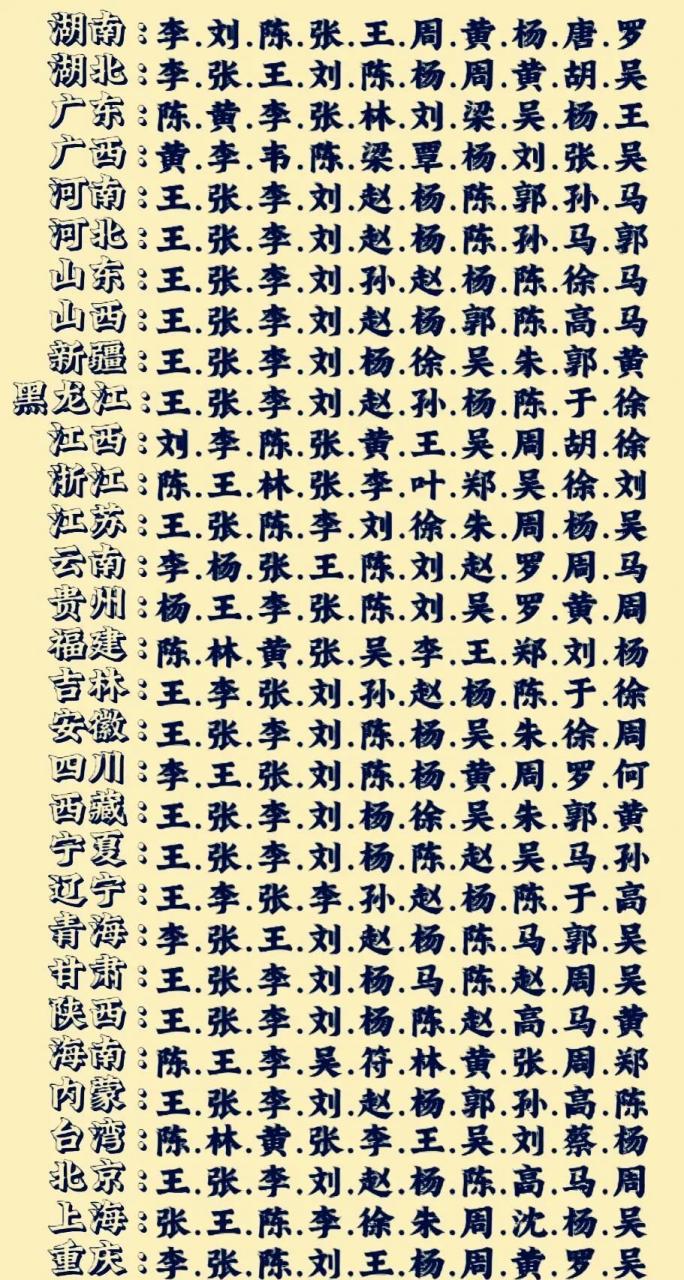 湖南:李.刘.陈.张.王.周.黄.杨.唐.罗
湖北:李.张.王.刘.陈.杨.周.黄.胡.吴
广东:陈.黄.李.张.林.刘.梁.吴.杨.王
广西:黄.李.韦.陈.梁.覃.杨.刘.张.吴
河南:王.张.李.刘.赵.杨.陈.郭.孙.马
河北:王.张.李.刘.赵.杨.陈.孙.马.郭
山东:王.张.李.刘.孙.赵.杨.陈.徐.马
山西:王.张.李.刘.赵.杨.郭.陈.高.马
新疆:王.张.李.刘.杨.徐.吴.朱.郭.黄
黑龙江:王.张.李.刘.赵.孙.杨.陈.于.徐
江西:刘.李.陈.张.黄.王.吴.周.胡.徐
浙江:陈.王.林.张.李.叶.郑.吴.徐.刘
江苏:王.张.陈.李.刘.徐.朱.周.杨.吴
云南:李.杨.张.王.陈.刘.赵.罗.周.马
贵州:杨.王.李.张.陈.刘.吴.罗.黄.周
福建:陈.林.黄.张.吴.李.王.郑.刘.杨
吉林:王.李.张.刘.孙.赵.杨.陈.于.徐
安徽:王.张.李.刘.陈.杨.吴.朱.徐.周
四川:李.王.张.刘.陈.杨.黄.周.罗.何
西藏:王.张.李.刘.杨.徐.吴.朱.郭.黄
宁夏:王.张.李.刘.杨.陈.赵.吴.马.孙
辽宁:王.李.张.李.孙.赵.杨.陈.于.高
青海:李.张.王.刘.赵.杨.陈.马.郭.吴
甘肃:王.张.李.刘.杨.马.陈.赵.周.吴
陕西:王.张.李.刘.杨.陈.赵.高.马.黄
海南:陈.王.李.吴.符.林.黄.张.周.郑
内蒙:王.张.李.刘.赵.杨.郭.孙.高.陈
台湾:陈.林.黄.张.李.王.吴.刘.蔡.杨
北京:王.张.李.刘.赵.杨.陈.高.马.周
上海:张.王.陈.李.徐.朱.周.沈.杨.吴
重庆:李.张.陈.刘.王.杨.周.黄.罗.吴